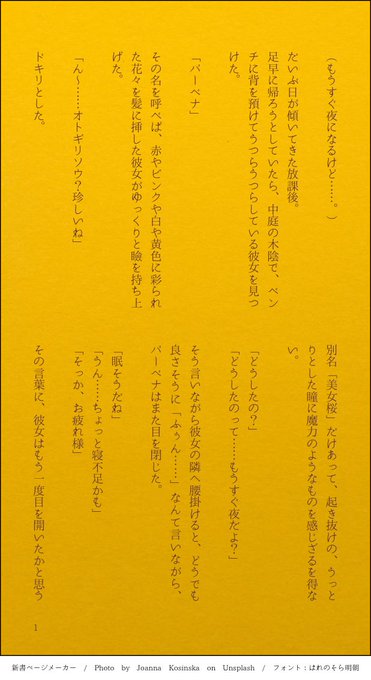 （もうすぐ夜になるけど……。）
だいぶ日が傾いてきた放課後。
足早に帰ろうとしていたら、中庭の木陰で、ベン
チに背を預けてうつらうつらしている彼女を見つ
けた。
「バーベナ」
その名を呼べば、赤やピンクや白や黄色に彩られ
た花々を髪に挿した彼女がゆっくりと瞼を持ち上
げた。
「ん～……オトギリソウ？珍しいね」
ドキリとした。
別名「美女桜」だけあって、起き抜けの、うっと
りとした瞳に魔力のようなものを感じざるを得な
い。
「どうしたの？」
「どうしたのって……もうすぐ夜だよ？」
そう言いながら彼女の隣へ腰掛けると、どうでも
良さそうに「ふぅん……」なんて言いながら、
バーベナはまた目を閉じた。
「眠そうだね」
「うん……ちょっと寝不足かも」
「そっか、お疲れ様」
その言葉に、彼女はもう一度目を開いたかと思う
1
新書ページメーカー / Photo by Joanna Kosinska on Unsplash / フォント：はれのそら明朝